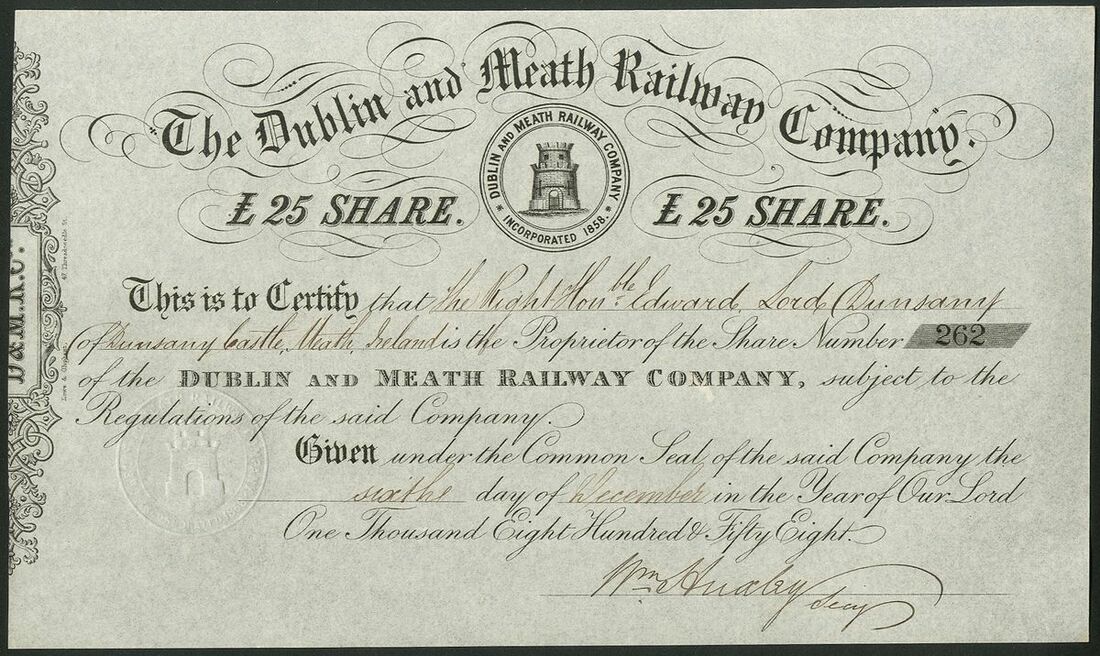 The Dublin and Meath Railway Company.
DUBLIN AND MEATH RAILWAY COMPANY
INCORPORATED 1858.
£ 25 SHARE. £ 25 SHARE.
This is to Certify that The Right Honble. Edward, Lord Dunsany
of Dunsany Castle, Meath, Ireland is the Proprietor of the Share Number 262
of the DUBLIN AND MEATH RAILWAY COMPANY, subject to the
Regulations of the said Company.
Given under the Common Seal of the said Company the
sixth day of December in the Year of Our Lord
One Thousand Eight Hundred & Fifty Eight.
Wm. Huxley Secy
D & M.R.C.
47 Threadneedle St.